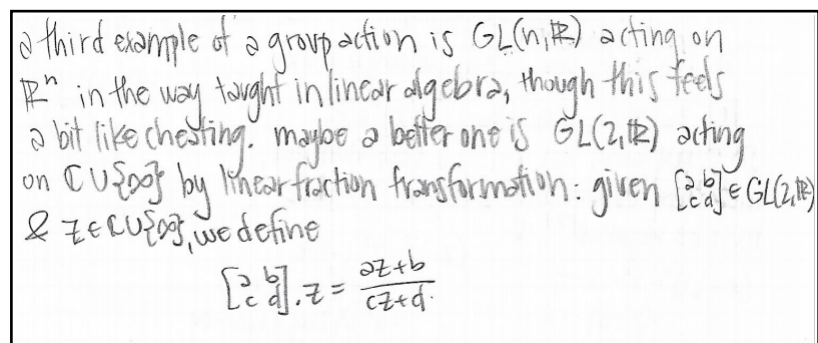 a third example of a group action is GL(n,ℝ) acting on
ℝⁿ in the way taught in linear algebra, though this feels
a bit like cheating. maybe a better one is GL(2,ℝ) acting
on ℂ∪{∞} by linear fraction transformation: given [a b; c d] ∈ GL(2,ℝ)
& z∈ℂ∪{∞}, we define
[a b; c d].z = (az+b)/(cz+d).